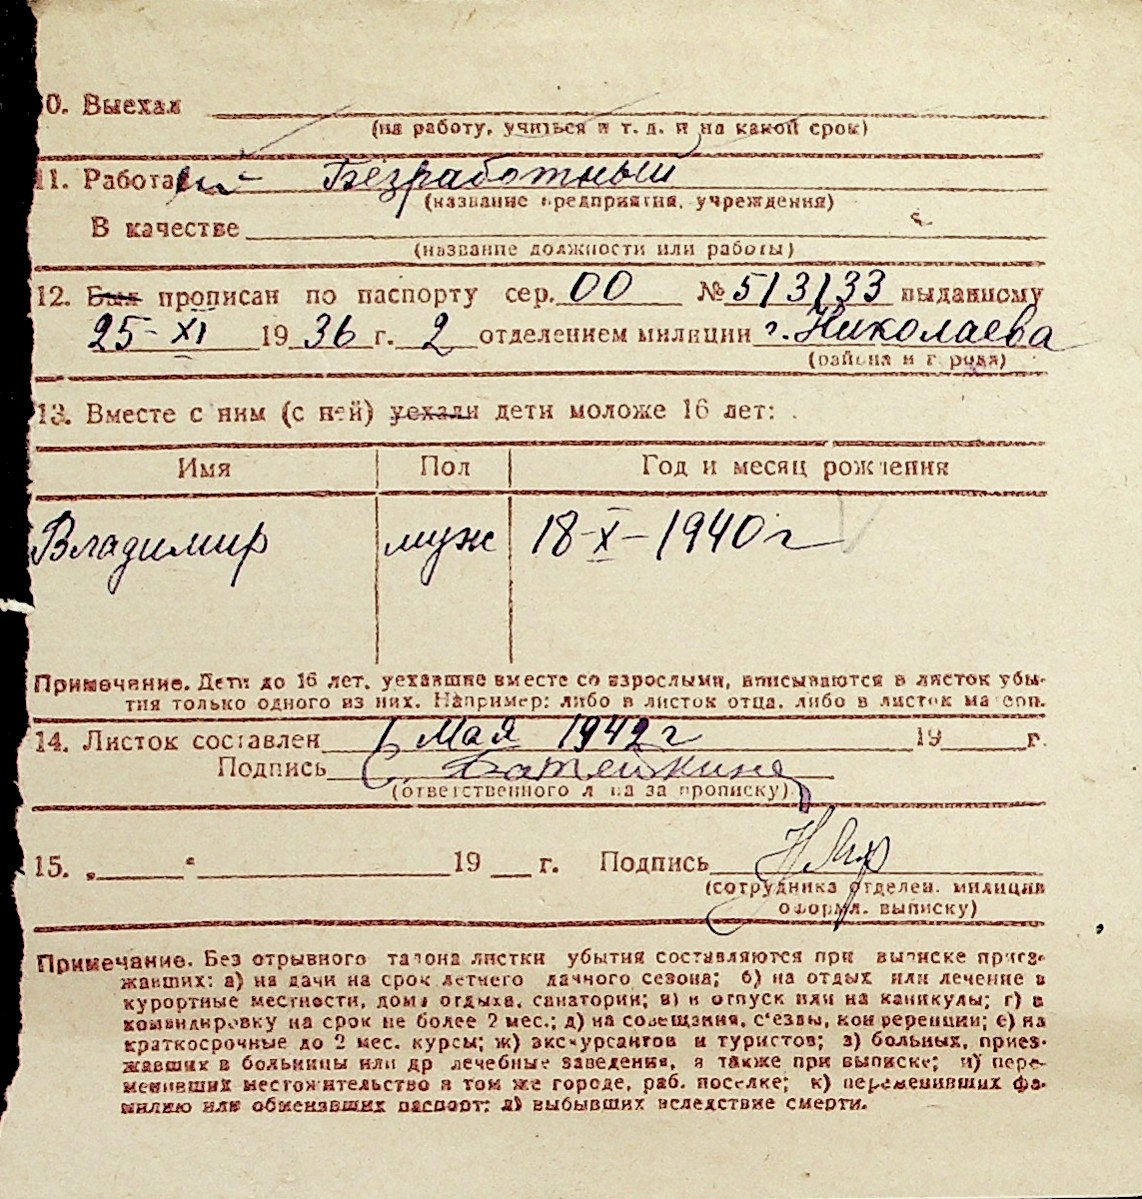 0. Выехал
(на работу, учиться и т. д. и на какой срок)
11. Работа Безработный
(название предприятия, учреждения)
В качестве
(название должности или работы)
12. Был прописан по паспорту сер. 00 № 513133 выданному
25-XI 1936 г. 2 отделением милиции г. Николаева
(района и города)
13. Вместе с ним (с ней) уехали дети моложе 16 лет:
Имя Пол Год и месяц рождения
Владимир муж 18-X-1940 г
Примечание. Дети до 16 лет, уехавшие вместе со взрослыми, вписываются в листок убы-
тия только одного из них. Например: либо в листок отца, либо в листок матери.
14. Листок составлен Мая 1942 г 19 г.
Подпись
(ответственного лица за прописку)
15. „ “ 19 г. Подпись
(сотрудника отделен. милиции
оформл. выписку)
Примечание. Без отрывного талона листки убытия составляются при выписке приез-
жавших: а) на дачи на срок летнего дачного сезона; б) на отдых или лечение в
курортные местности, дома отдыха, санатории; в) в отпуск или на каникулы; г) в
командировку на срок не более 2 мес.; д) на совещания, с'езды, конференции; е) на
краткосрочные до 2 мес. курсы; ж) экскурсантов и туристов; з) больных, приез-
жавших в больницы или др лечебные заведения, а также при выписке; и) пере-
менивших местожительство в том же городе, раб. поселке; к) переменивших фа-
милию или обменявших паспорт; л) выбывших вследствие смерти.